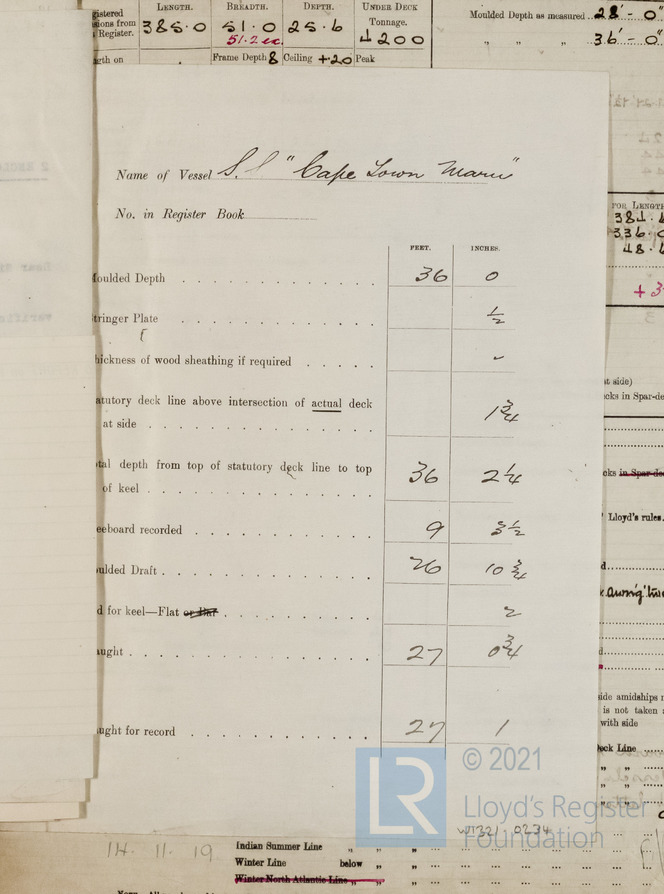 LENGTH. BREADTH. DEPTH. UNDER DECK
Tonnage.
gistered
sions from
Register.
385.0 51.0 25.6 4200
51.2 ec.
Moulded Depth as measured 28'-0"
„ „ „ 36'-0"
gth on Frame Depth 8 Ceiling +20 Peak
Name of Vessel S.S "Cape Town Maru"
No. in Register Book
FEET. INCHES.
Moulded Depth 36 0
tringer Plate 1/2
hickness of wood sheathing if required -
atutory deck line above intersection of actual deck
at side 1 3/4
tal depth from top of statutory deck line to top
of keel 36 2 1/4
eeboard recorded 9 3 1/2
ulded Draft 26 10 3/4
d for keel—Flat or Bar 2
aught 27 0 3/4
aught for record 27 1
FOR LENGTH
384.6
336.0
48.6
+3
at side)
cks in Spar-de
cks in Spar-de
Lloyd's rules.
d.
side amidships
is not taken
with side
Deck Line
„ „
„ „
„ „
© 2021
LR Lloyd's Register
Foundation
W1321-0234
14.11.19
Indian Summer Line „ „
Winter Line below „
Winter North Atlantic Line „ „